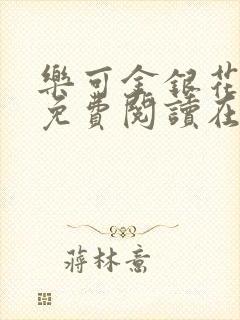 樂可金銀花
免費閱讀在
蔣林意